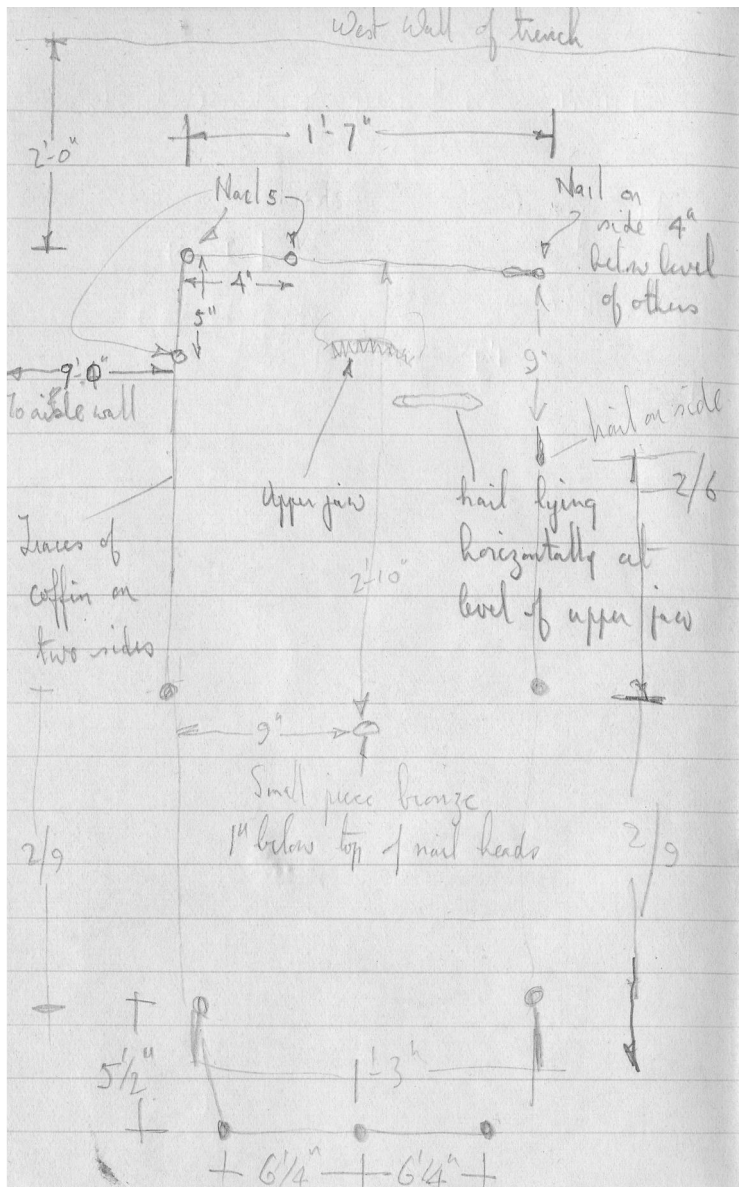 West Wall of trench
2'-0"
1'-7"
Nails
Nail on
side 4"
below level
of others
4"
5"
9"
9'-0"
To aisle wall
nail on side
2/6
Upper jaw
nail lying
horizontally at
level of upper jaw
Traces of
coffin on
two sides
2'-10"
9"
Small piece bronze
1" below top of nail heads
2/9
2/9
5 1/2"
1'-3"
6 1/4"
6 1/4"